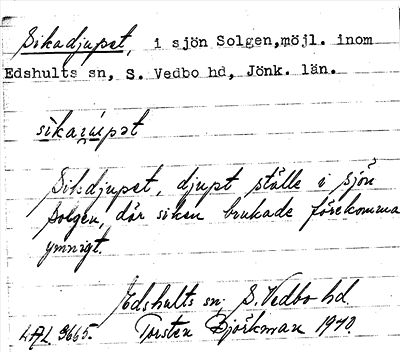 Sikadjupet, i sjön Solgen,möjl. inom
Edshults sn, S. Vedbo hd, Jönk. län.
sìkajúpət
Sikdjupet, djupt ställe i sjön
Solgen, där siken brukade förekomma
ymnigt.
Edshults sn. S. Vedbo hd.
LAL 3665. Torsten Björkman 1940.